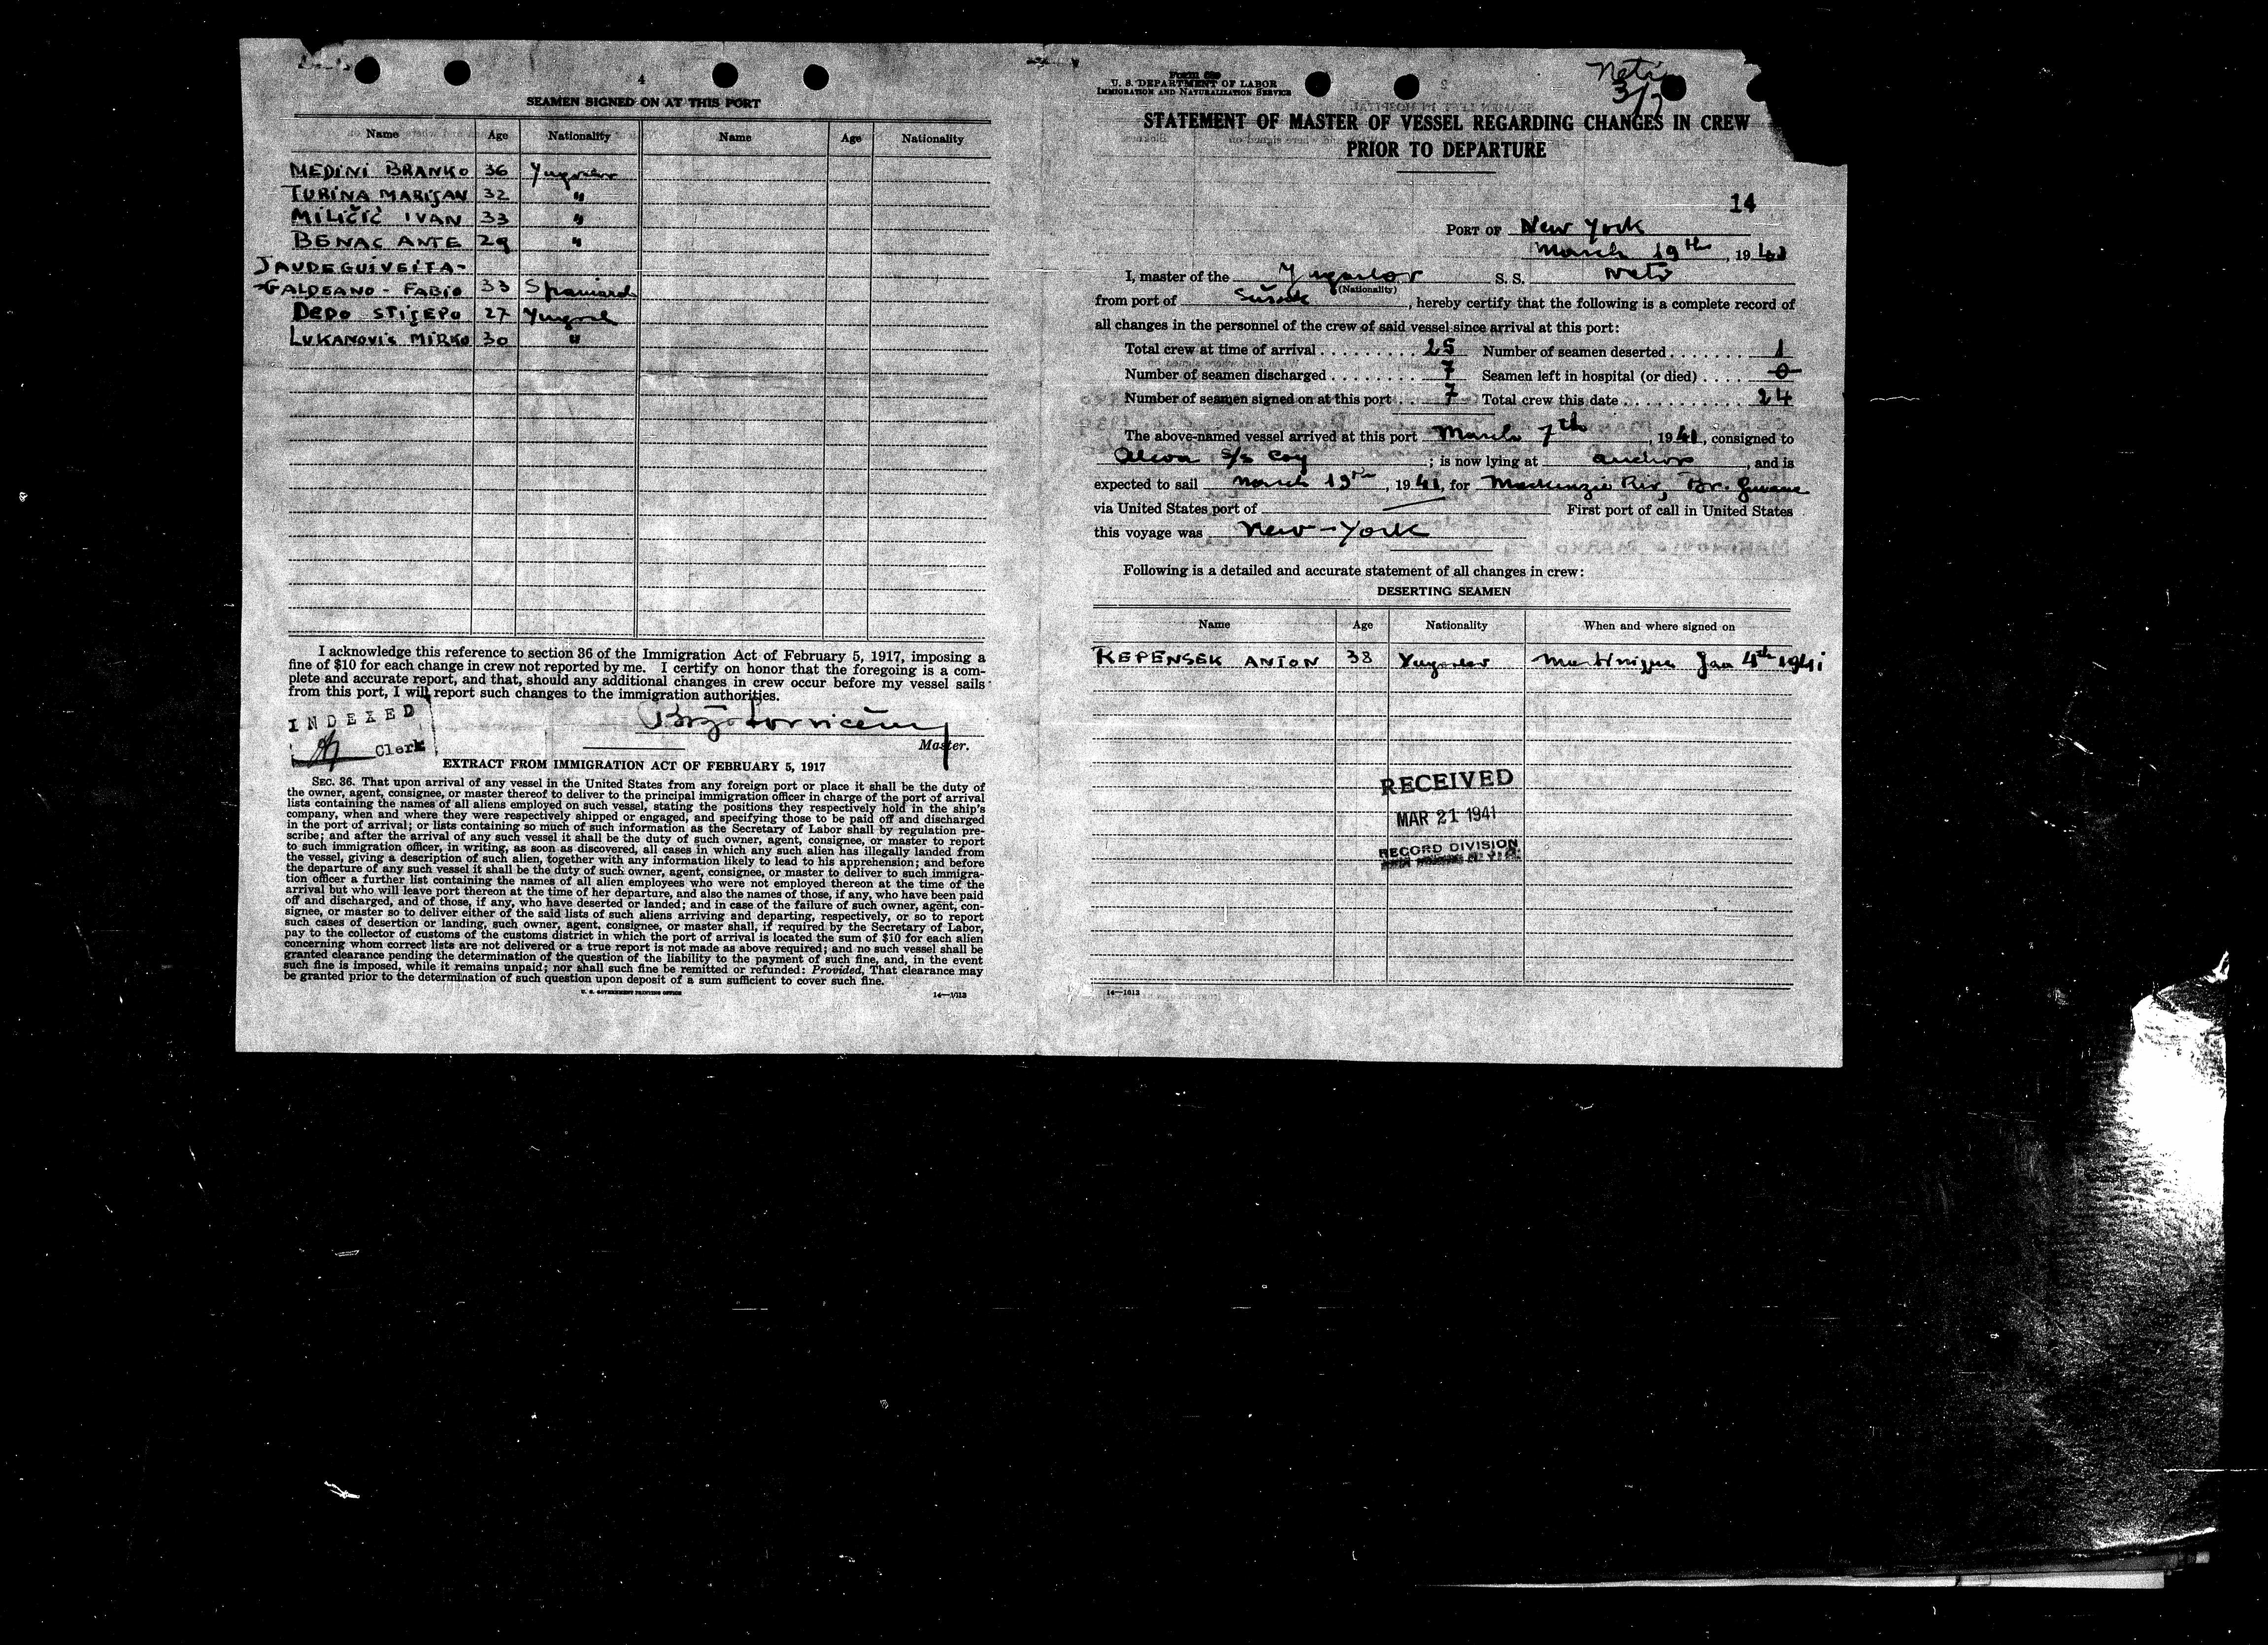 4
SEAMEN SIGNED ON AT THIS PORT
Name Age Nationality Name Age Nationality
MEDINI BRANKO 36 Yugoslav
TURINA MARIJAN 32 "
MILIČIĆ IVAN 33 "
BENAC ANTE 29 "
JAUDEGUIVEITA-
GALDEANO - FABIO 33 Spaniard
DEDO STIJEPO 27 Yugosl
LUKANOVIĆ MIRKO 30 "
I acknowledge this reference to section 36 of the Immigration Act of February 5, 1917, imposing a
fine of $10 for each change in crew not reported by me. I certify on honor that the foregoing is a com-
plete and accurate report, and that, should any additional changes in crew occur before my vessel sails
from this port, I will report such changes to the immigration authorities.
INDEXED
Clerk
Master.
EXTRACT FROM IMMIGRATION ACT OF FEBRUARY 5, 1917
SEC. 36. That upon arrival of any vessel in the United States from any foreign port or place it shall be the duty of
the owner, agent, consignee, or master thereof to deliver to the principal immigration officer in charge of the port of arrival
lists containing the names of all aliens employed on such vessel, stating the positions they respectively hold in the ship's
company, when and where they were respectively shipped or engaged, and specifying those to be paid off and discharged
in the port of arrival; or lists containing so much of such information as the Secretary of Labor shall by regulation pre-
scribe; and after the arrival of any such vessel it shall be the duty of such owner, agent, consignee, or master to report
to such immigration officer, in writing, as soon as discovered, all cases in which any such alien has illegally landed from
the vessel, giving a description of such alien, together with any information likely to lead to his apprehension; and before
the departure of any such vessel it shall be the duty of such owner, agent, consignee, or master to deliver to such immigra-
tion officer a further list containing the names of all alien employees who were not employed thereon at the time of the
arrival but who will leave port thereon at the time of her departure, and also the names of those, if any, who have been paid
off and discharged, and of those, if any, who have deserted or landed; and in case of the failure of such owner, agent, con-
signee, or master so to deliver either of the said lists of such aliens arriving and departing, respectively, or so to report
such cases of desertion or landing, such owner, agent, consignee, or master shall, if required by the Secretary of Labor,
pay to the collector of customs of the customs district in which the port of arrival is located the sum of $10 for each alien
concerning whom correct lists are not delivered or a true report is not made as above required; and no such vessel shall be
granted clearance pending the determination of the question of the liability to the payment of such fine, and, in the event
such fine is imposed, while it remains unpaid; nor shall such fine be remitted or refunded: Provided, That clearance may
be granted prior to the determination of such question upon deposit of a sum sufficient to cover such fine.
U. S. GOVERNMENT PRINTING OFFICE
Form
U. S. DEPARTMENT OF LABOR
IMMIGRATION AND NATURALIZATION SERVICE
Neti
3/7
STATEMENT OF MASTER OF VESSEL REGARDING CHANGES IN CREW
PRIOR TO DEPARTURE
14
PORT OF New York
March 19th, 1941
I, master of the Yugoslav S. S. Neti
(Nationality)
from port of Sušak, hereby certify that the following is a complete record of
all changes in the personnel of the crew of said vessel since arrival at this port:
Total crew at time of arrival 25 Number of seamen deserted 1
Number of seamen discharged 7 Seamen left in hospital (or died) 0
Number of seamen signed on at this port 7 Total crew this date 24
The above-named vessel arrived at this port March 7th, 1941, consigned to
Alcoa S/S Coy; is now lying at anchor, and is
expected to sail March 19th, 1941, for Mackenzie Riv, Br. Guiana
via United States port of First port of call in United States
this voyage was New-York
Following is a detailed and accurate statement of all changes in crew:
DESERTING SEAMEN
Name Age Nationality When and where signed on
KEPENSEK ANTON 38 Yugoslav Martinique Jan 4th 1941
RECEIVED
MAR 21 1941
RECORD DIVISION
14—1613